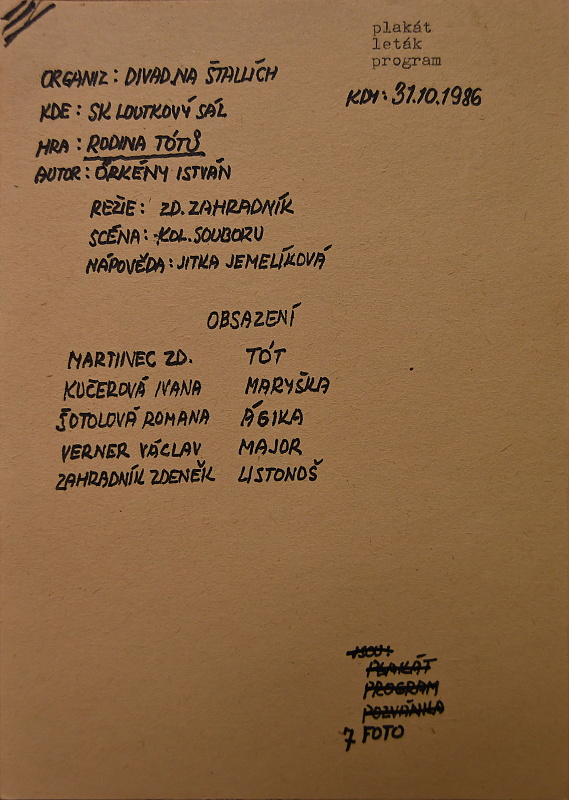 plakát
leták
program
ORGANIZ: DIVAD.NA ŠTALLÍCH
KDY: 31.10.1986
KDE: SK LOUTKOVÝ SÁL
HRA: RODINA TÓTŮ
AUTOR: ÖRKÉNY ISTVÁN
REŽIE: ZD. ZAHRADNÍK
SCÉNA: KOL. SOUBORU
NÁPOVĚDA: JITKA JEMELÍKOVÁ
OBSAZENÍ
MARTINEC ZD. TÓT
KUČEROVÁ IVANA MARYŠKA
ŠOTOLOVÁ ROMANA ÁGIKA
VERNER VÁCLAV MAJOR
ZAHRADNÍK ZDENĚK LISTONOŠ
JSOU:
PLAKÁT
PROGRAM
POZVÁNKA
7 FOTO